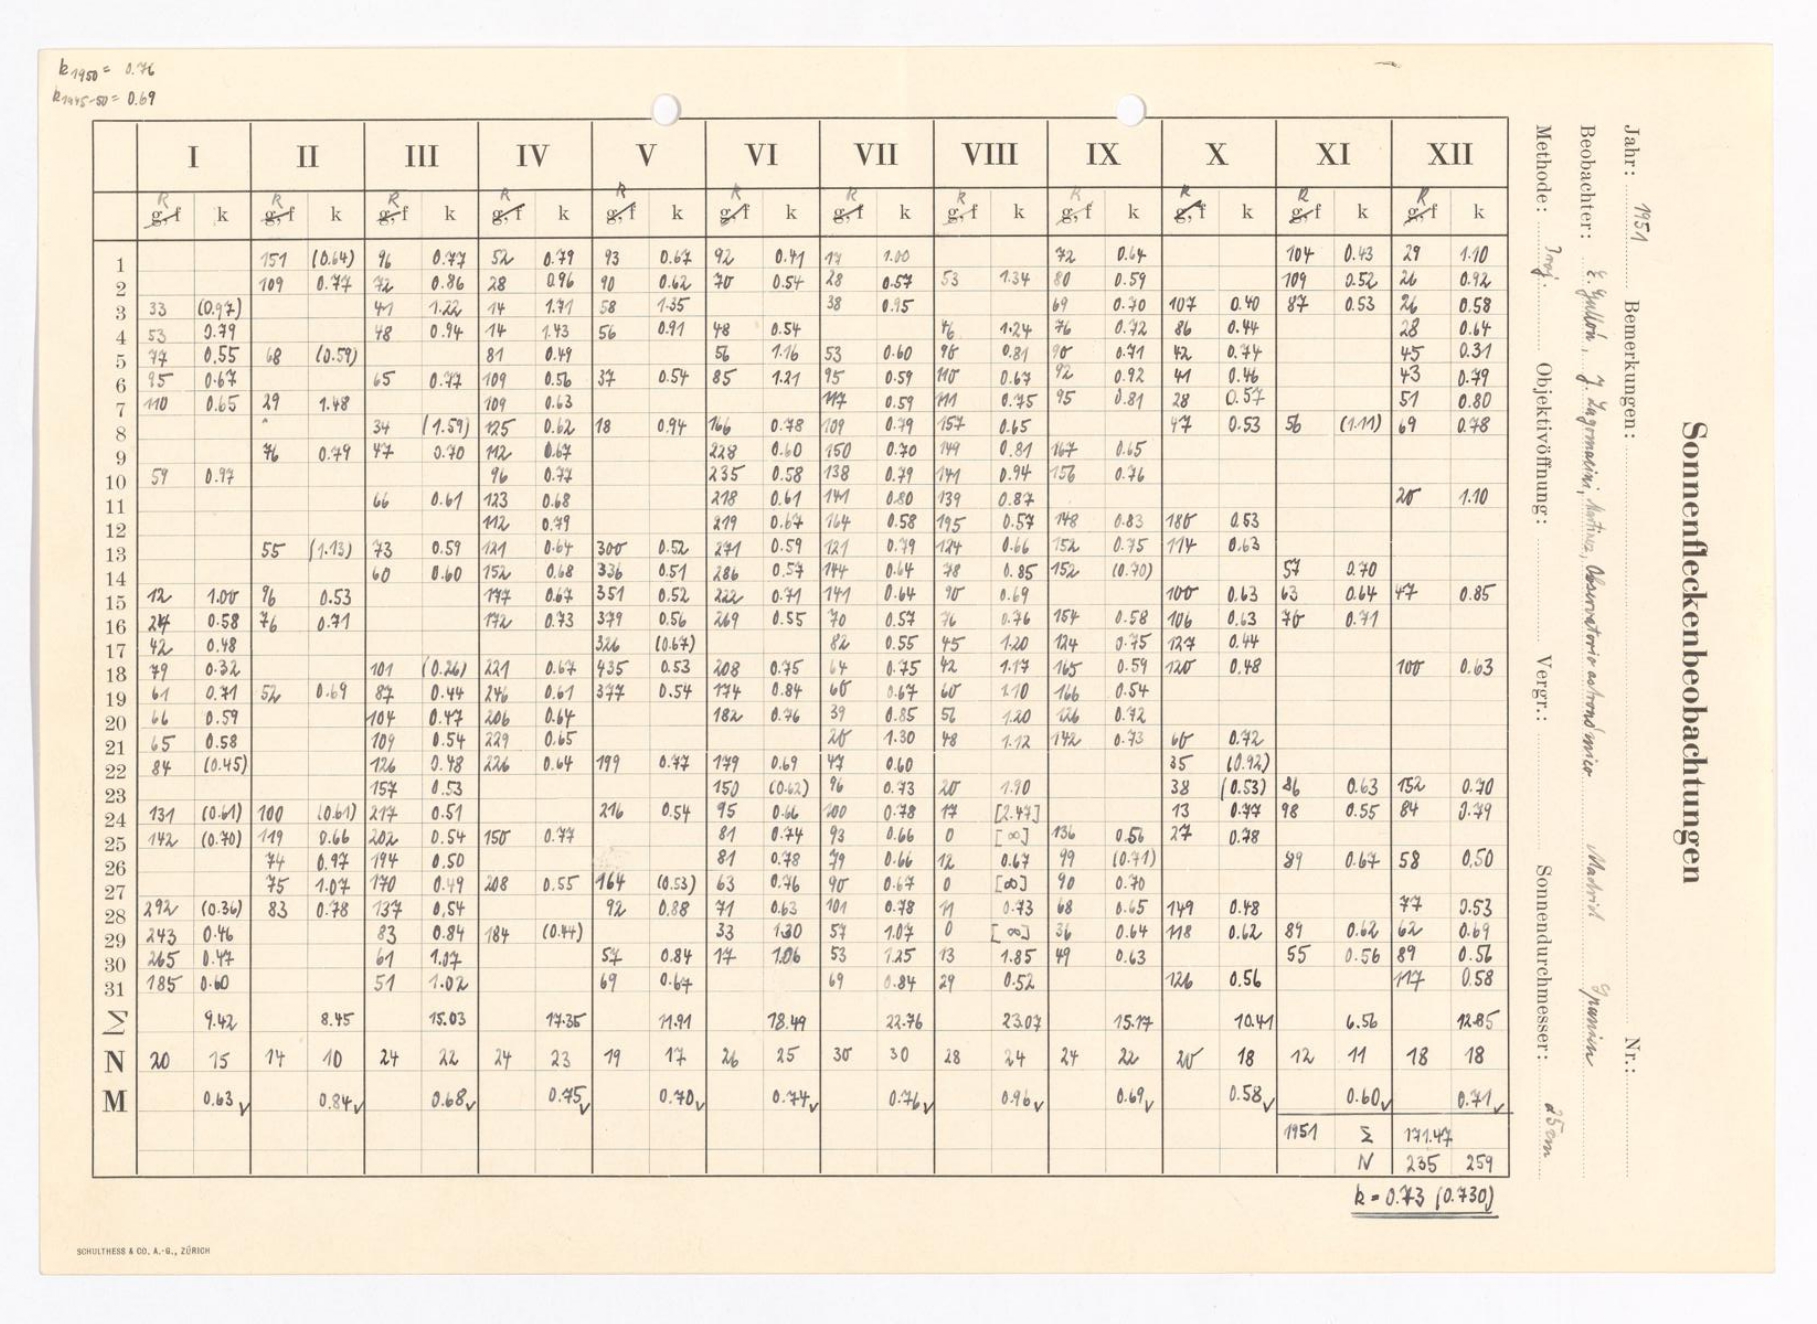 k1950 = 0.76
k1945-50 = 0.69
Sonnenfleckenbeobachtungen
Jahr: 1951 Bemerkungen: Nr.:
Beobachter: E. Gullón, J. Zugomasini, Martinez, Observatorio astronómico Madrid Spanien
Methode: Proj. Objektivöffnung: Vergr.: Sonnendurchmesser: 25 cm
I II III IV V VI VII VIII IX X XI XII
R R R R R R R R R R R R
g, f k g, f k g, f k g, f k g, f k g, f k g, f k g, f k g, f k g, f k g, f k g, f k
1 151 (0.64) 96 0.77 52 0.79 93 0.67 92 0.41 17 1.00 72 0.64 104 0.43 29 1.10
2 109 0.77 72 0.86 28 0.96 90 0.62 70 0.54 28 0.57 53 1.34 80 0.59 109 0.52 26 0.92
3 33 (0.97) 41 1.22 14 1.71 58 1.35 38 0.95 69 0.70 107 0.40 87 0.53 26 0.58
4 53 0.79 48 0.94 14 1.43 56 0.91 48 0.54 46 1.24 76 0.72 86 0.44 28 0.64
5 77 0.55 68 (0.59) 81 0.49 56 1.16 53 0.60 98 0.81 90 0.71 42 0.74 45 0.31
6 95 0.67 65 0.77 109 0.56 37 0.54 85 1.21 95 0.59 110 0.67 92 0.92 41 0.46 43 0.79
7 110 0.65 29 1.48 109 0.63 117 0.59 111 0.75 95 0.81 28 0.57 51 0.80
8 34 (1.59) 125 0.62 18 0.94 166 0.78 109 0.79 157 0.65 47 0.53 56 (1.11) 69 0.78
9 76 0.79 47 0.70 112 0.67 228 0.60 150 0.70 149 0.81 167 0.65
10 59 0.97 96 0.77 235 0.58 138 0.79 141 0.94 156 0.76
11 66 0.61 123 0.68 218 0.61 141 0.80 139 0.87 20 1.10
12 112 0.79 219 0.67 164 0.58 195 0.57 148 0.83 180 0.53
13 55 (1.13) 73 0.59 121 0.64 300 0.52 271 0.59 121 0.79 124 0.66 152 0.75 114 0.63
14 60 0.60 152 0.68 336 0.51 286 0.57 144 0.64 78 0.85 152 (0.70) 57 0.70
15 12 1.00 96 0.53 177 0.67 351 0.52 222 0.71 141 0.64 90 0.69 100 0.63 63 0.64 47 0.85
16 24 0.58 76 0.71 172 0.73 379 0.56 269 0.55 70 0.57 76 0.76 154 0.58 106 0.63 70 0.71
17 42 0.48 326 (0.67) 82 0.55 45 1.20 124 0.75 127 0.44
18 79 0.32 101 (0.26) 221 0.67 435 0.53 208 0.75 64 0.75 42 1.17 165 0.59 120 0.48 100 0.63
19 61 0.71 52 0.69 87 0.44 246 0.61 377 0.54 174 0.84 60 0.67 60 1.10 166 0.54
20 66 0.59 104 0.47 206 0.64 182 0.76 39 0.85 56 1.20 126 0.72
21 65 0.58 109 0.54 229 0.65 20 1.30 48 1.12 142 0.73 60 0.72
22 84 (0.45) 126 0.48 226 0.64 199 0.77 179 0.69 47 0.60 35 (0.92)
23 157 0.53 150 (0.62) 96 0.73 20 1.90 38 (0.53) 86 0.63 152 0.70
24 131 (0.61) 100 (0.61) 217 0.51 216 0.54 95 0.66 100 0.78 17 [2.47] 13 0.77 98 0.55 84 0.79
25 142 (0.70) 119 0.66 202 0.54 150 0.77 81 0.74 93 0.66 0 [∞] 136 0.56 27 0.78
26 74 0.97 194 0.50 81 0.78 79 0.66 12 0.67 99 (0.71) 89 0.67 58 0.50
27 75 1.07 170 0.49 208 0.55 164 (0.53) 63 0.76 90 0.67 0 [∞] 90 0.70
28 292 (0.36) 83 0.78 137 0.54 92 0.88 71 0.63 101 0.78 11 0.73 68 0.65 149 0.48 77 0.53
29 243 0.46 83 0.84 184 (0.44) 33 1.30 57 1.07 0 [∞] 36 0.64 118 0.62 89 0.62 62 0.69
30 265 0.47 61 1.07 57 0.84 17 1.06 53 1.25 13 1.85 49 0.63 55 0.56 89 0.56
31 185 0.60 51 1.02 69 0.67 69 0.84 29 0.52 126 0.56 117 0.58
Σ 9.42 8.45 15.03 17.35 11.91 18.49 22.76 23.07 15.17 10.41 6.56 12.85
N 20 15 14 10 24 22 24 23 19 17 26 25 30 30 28 24 24 22 20 18 12 11 18 18
M 0.63✓ 0.84✓ 0.68✓ 0.75✓ 0.70✓ 0.74✓ 0.76✓ 0.96✓ 0.69✓ 0.58✓ 0.60✓ 0.71✓
1951 Σ 171.47
N 235 259
k = 0.73 (0.730)
SCHULTHESS & CO. A.-G., ZÜRICH